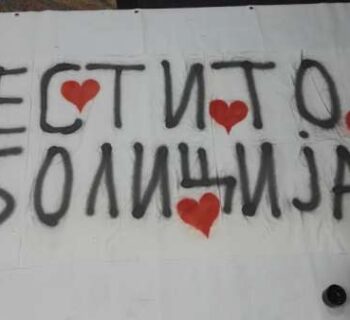 ЕСТИТО
БОЛИЦИЈА